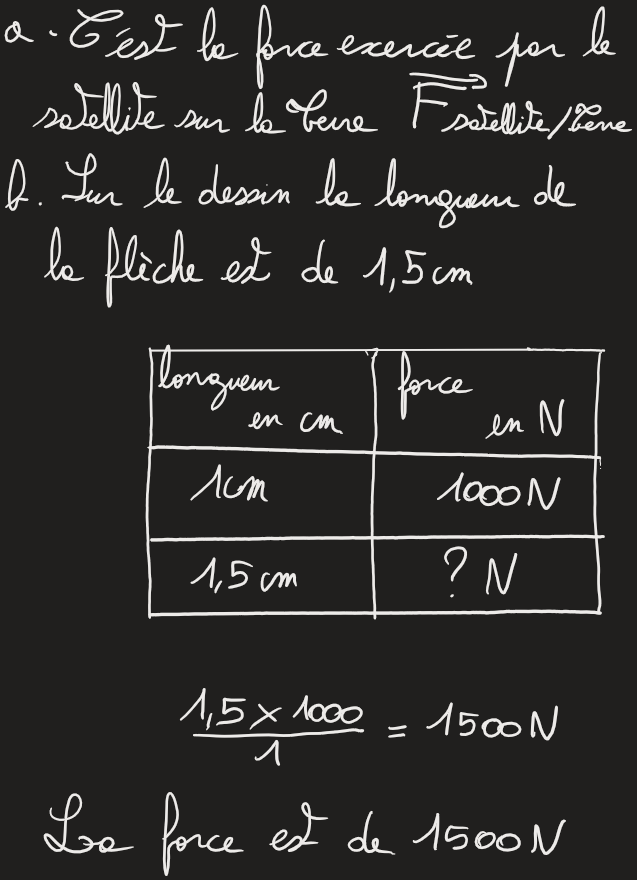 a. C'est la force exercée par le
satellite sur la Terre F satellite/Terre
b. Sur le dessin la longueur de
la flèche est de 1,5 cm
longueur en cm force en N
1cm 1000 N
1,5 cm ? N
1,5 × 1000 / 1 = 1500 N
La force est de 1500 N